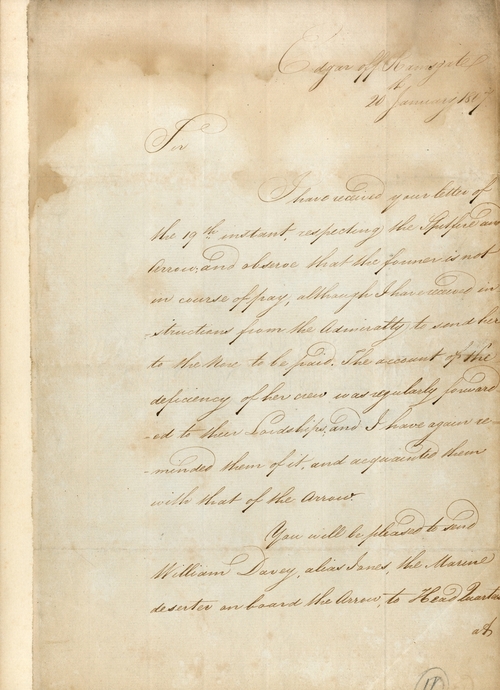 Edgar off Ramsgate
20th January 1807
Sir
I have received your letter of
the 19th instant, respecting the Spitfire and
Arrow, and observe that the former is not
in course of pay, although I have received in
-structions from the Admiralty to send her
to the Nore to be paid. The account of the
deficiency of her crew was regularly forward
-ed to their Lordships, and I have again re-
-minded them of it, and acquainted them
with that of the Arrow.
You will be pleased to send
William Davey, alias Jones, the Marine
deserter on board the Arrow, to Head Quarters
at